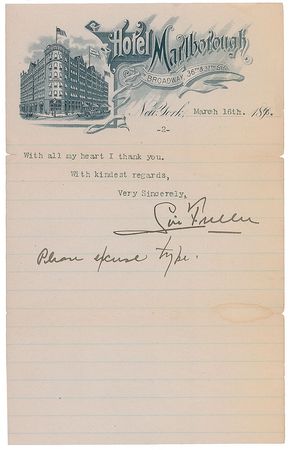 Hotel Marlborough,
BROADWAY, 36TH & 37TH STS.
New York, March 16th. 189
-2-
With all my heart I thank you.
With kindest regards,
Very Sincerely,
Loie Fuller
Please excuse type.